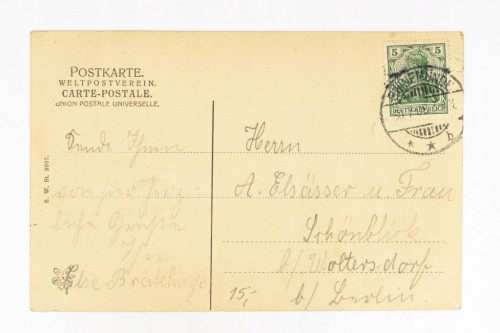 POSTKARTE.
WELTPOSTVEREIN.
CARTE-POSTALE.
UNION POSTALE UNIVERSELLE.
Sende Ihnen
von hier herz-
liche Grüße
Ihre
Else
S. W. St.
Herrn
A. Elsässer u. Frau
Schönblick
b/ Woltersdorf
b/ Berlin.
15,-
5 5
DEUTSCHES REICH